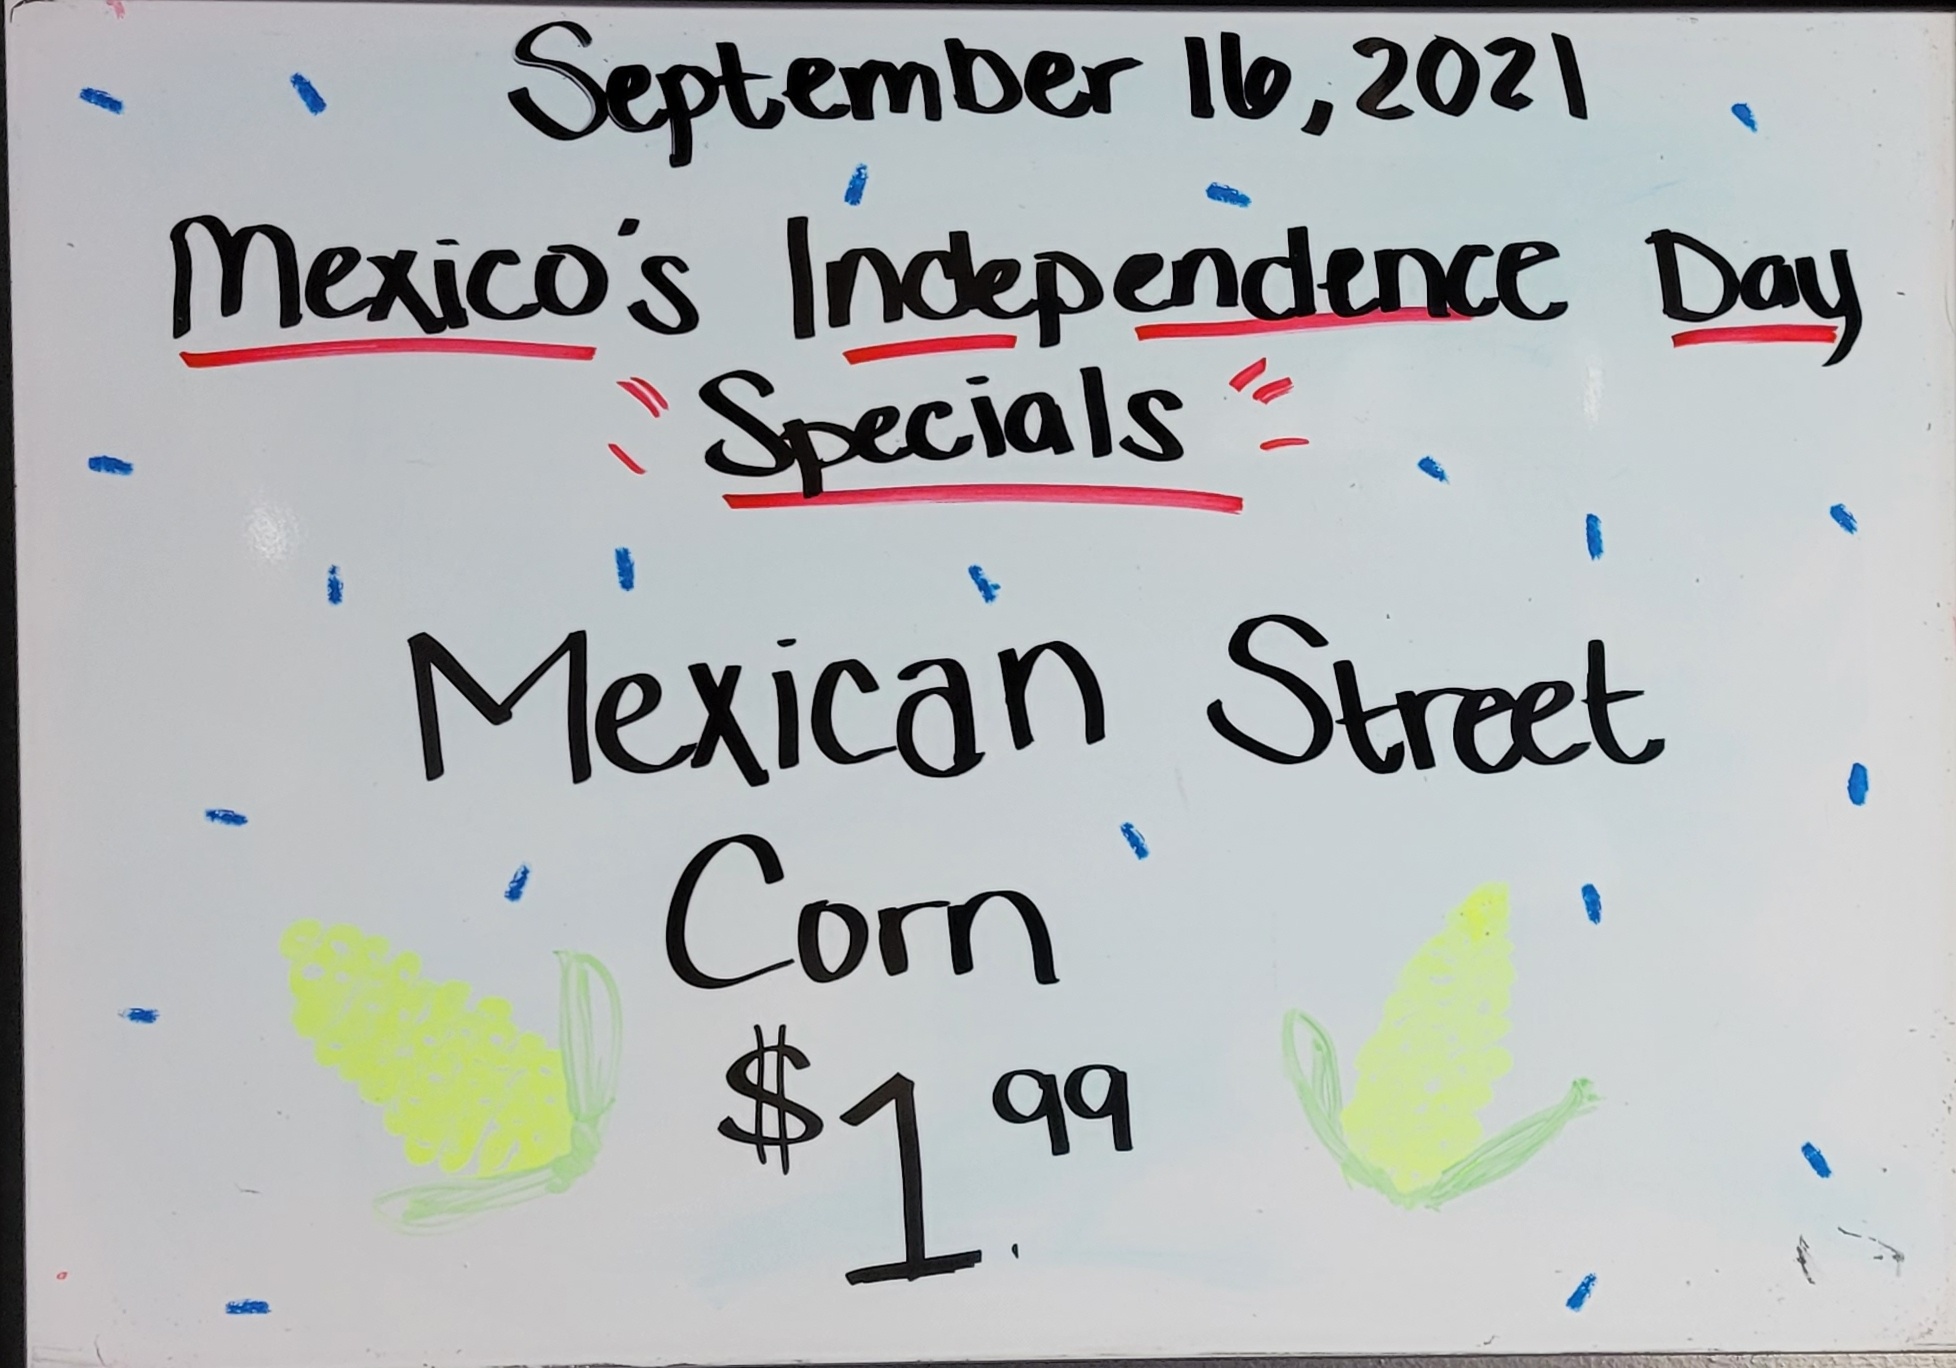 September 16, 2021
Mexico's Independence Day
Specials
Mexican Street
Corn
$1.99